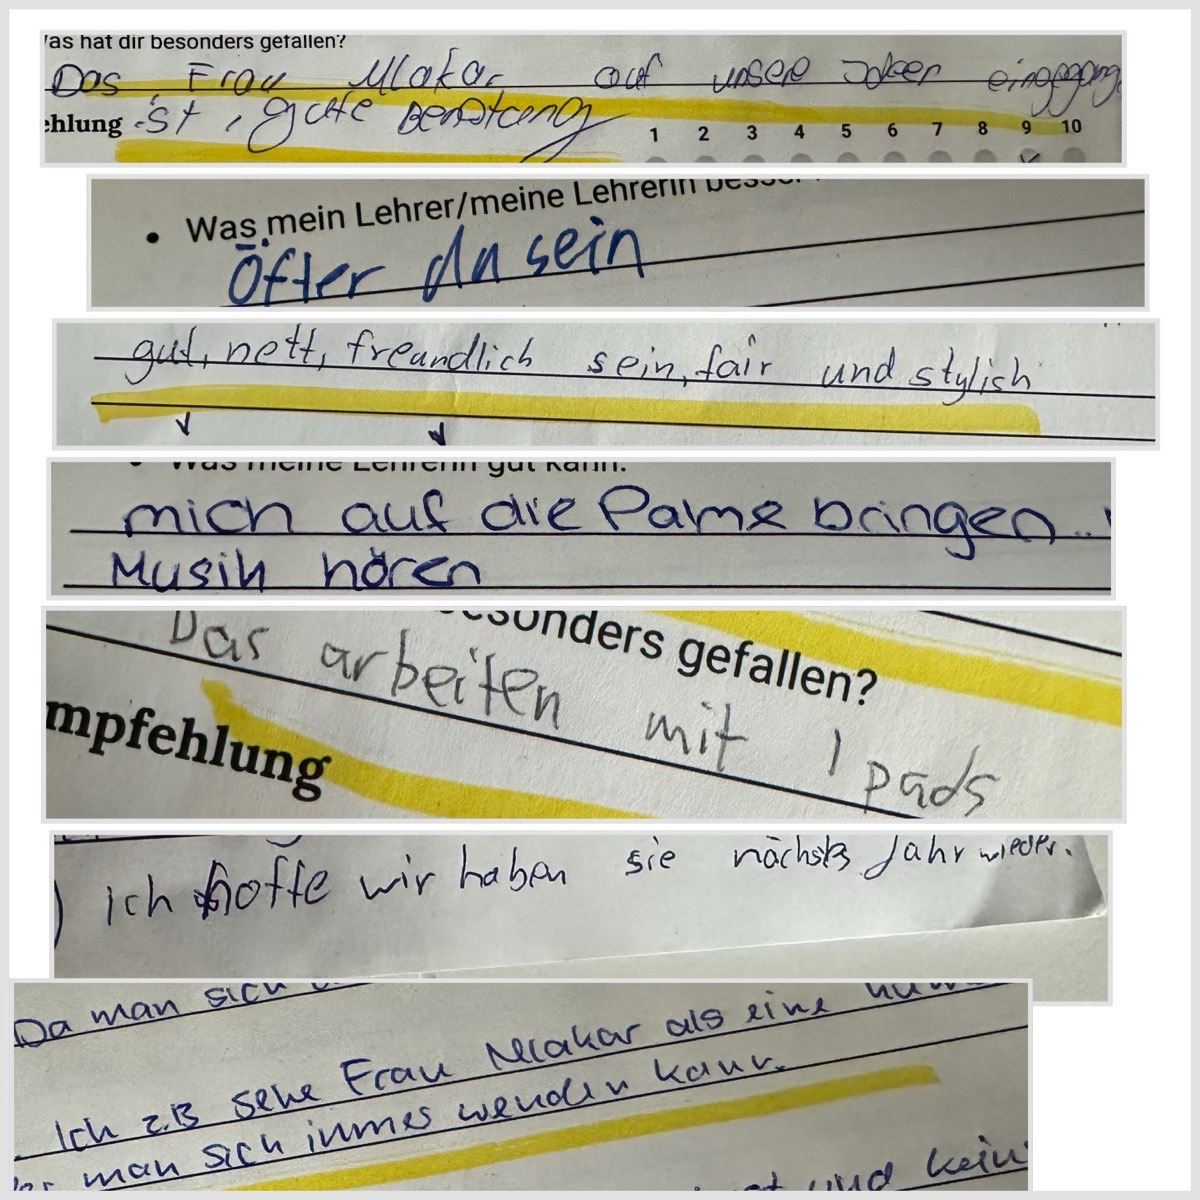 Was hat dir besonders gefallen?
Das Frau Mlakar auf unsere eingegang
ist, gute Beratung
ehlung 1 2 3 4 5 6 7 8 9 10
• Was mein Lehrer/meine Lehrerin
Öfter da sein
gut, nett, freundlich sein, fair und stylish
• Was meine Lehrerin gut kann:
mich auf die Palme bringen..
Musik hören
esonders gefallen?
Das arbeiten mit I pads
mpfehlung
ich hoffe wir haben sie nächstes Jahr wieder.
Da man sich
Ich z.B sehe Frau Mlakar als eine
man sich immer wenden kann.
und kein